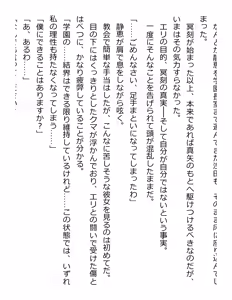 まった。
冥刻が始まった以上、本来であれば真矢のもとへ駆けつけるべきなのだが、
いまはその気力すらなかった。
エリの目的、冥刻の真実――そして自分が自分ではないという事実。
一度にそんなことを告げられて頭が混乱したままだ。
「……ごめんなさい、足手まといになってしまって」
静恵が肩で息をしながら呟く。
教会で簡単な手当はしたが、こんなに苦しそうな彼女を見るのは初めてだ。
目の下にはくっきりとしたクマが浮かんでおり、エリとの闘いで受けた傷と
はべつに、かなり疲弊していることが分かる。
「学園の……結界はできる限り維持しているけれど……この状態では、いずれ
私の理性も持たなくなってしまう……」
「僕にできることはありますか？」
「あ、あるわ……」